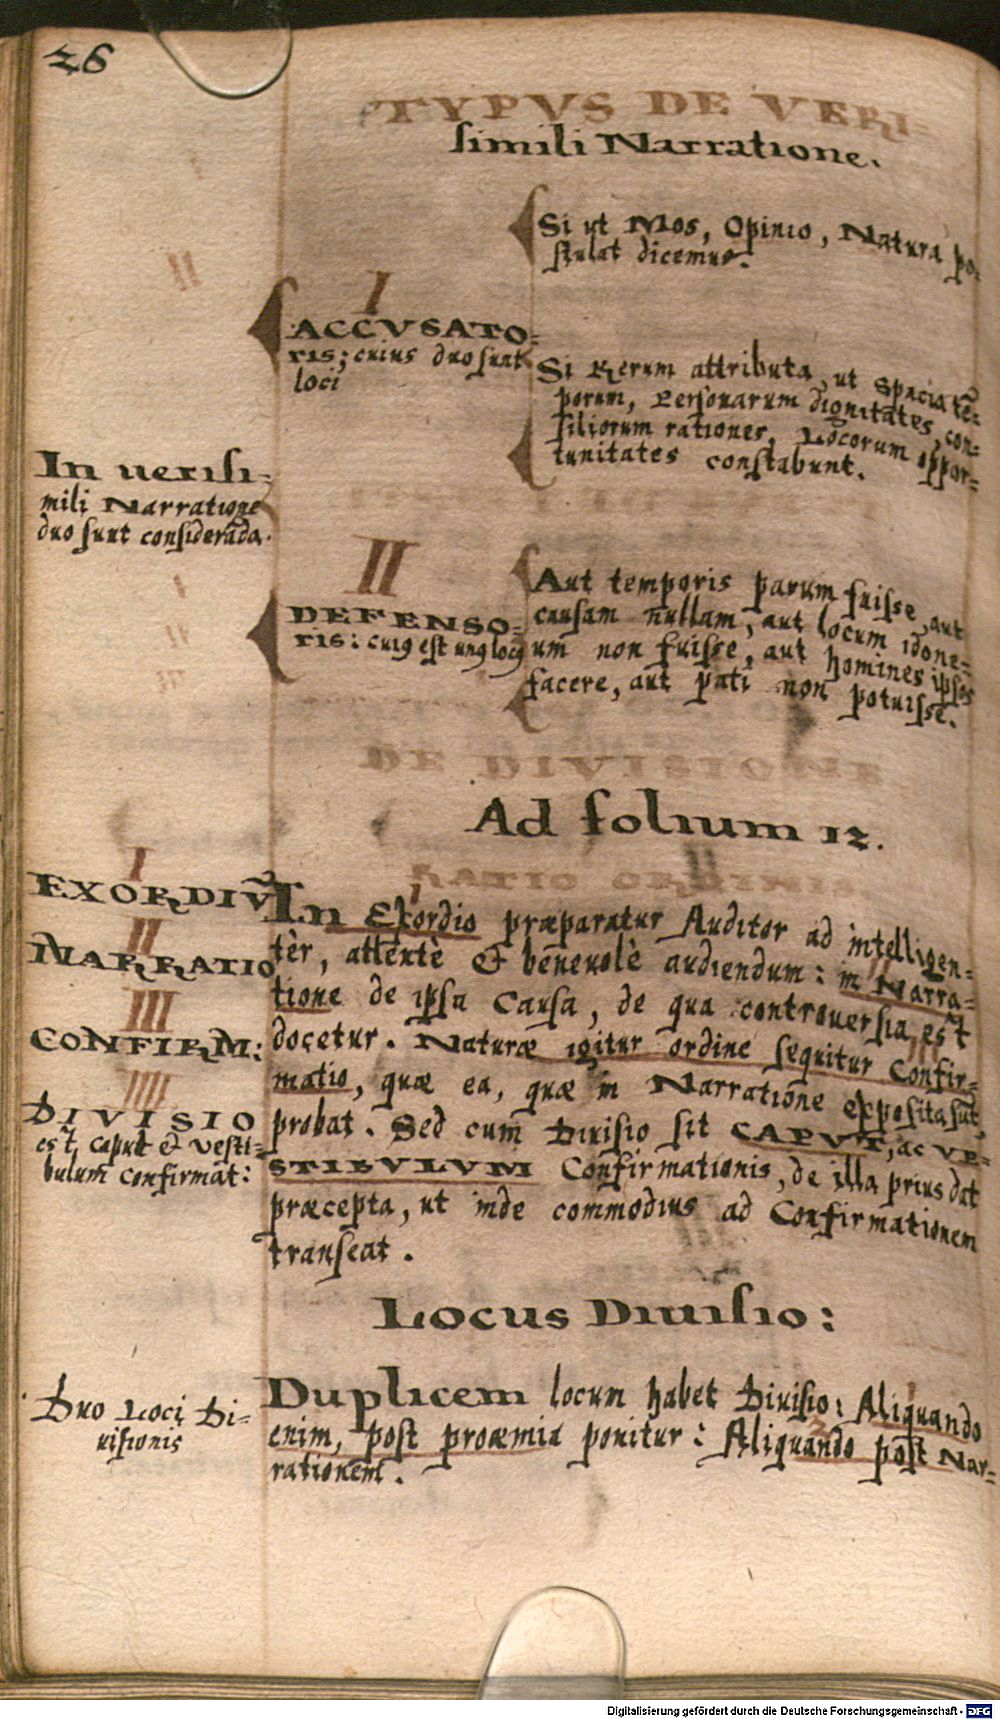 26
TYPVS DE VERI-
simili Narratione.
Si ut Mos, Opinio, Natura po-
stulat dicemus.
I
ACCVSATO-
ris; cuius duo sunt
loci
Si Rerum attributa, ut Spacia tē-
porum, Personarum dignitates, con-
siliorum rationes, Locorum oppor-
tunitates constabunt.
In uerisi-
mili Narratione
duo sunt considerāda.
II
DEFENSO-
ris: cui9 est un9 loc9
Aut temporis parum fuisse, aut
causam nullam, aut locum idone-
um non fuisse, aut homines ipsos
facere, aut pati non potuisse.
DE DIVISIONE
Ad folium 12.
RATIO ORDINIS
I
EXORDIṼ
II
NARRATIO
III
CONFIRM:
IIII
DIVISIO
est caput & Vesti-
bulum Confirmat:
In Exordio præparatur Auditor ad intelligen-
tèr, attentè & beneuolè audiendum: in Narra-
tione de ipsa Causa, de qua controuersia est
docetur. Naturæ igitur ordine sequitur Confir-
matio, quæ ea, quæ in Narratione exposita sūt,
probat. Sed cum Diuisio sit CAPVT, ac VE-
STIBVLVM Confirmationis, de illa prius dat
præcepta, ut inde commodius ad Confirmationem
transeat.
Locus Diuisio:
Duo Loci Di-
uisionis
Duplicem locum habet Diuisio: Aliquando
enim, post proæmia ponitur: Aliquando post Nar-
rationem.
Digitalisierung gefördert durch die Deutsche Forschungsgemeinschaft - DFG